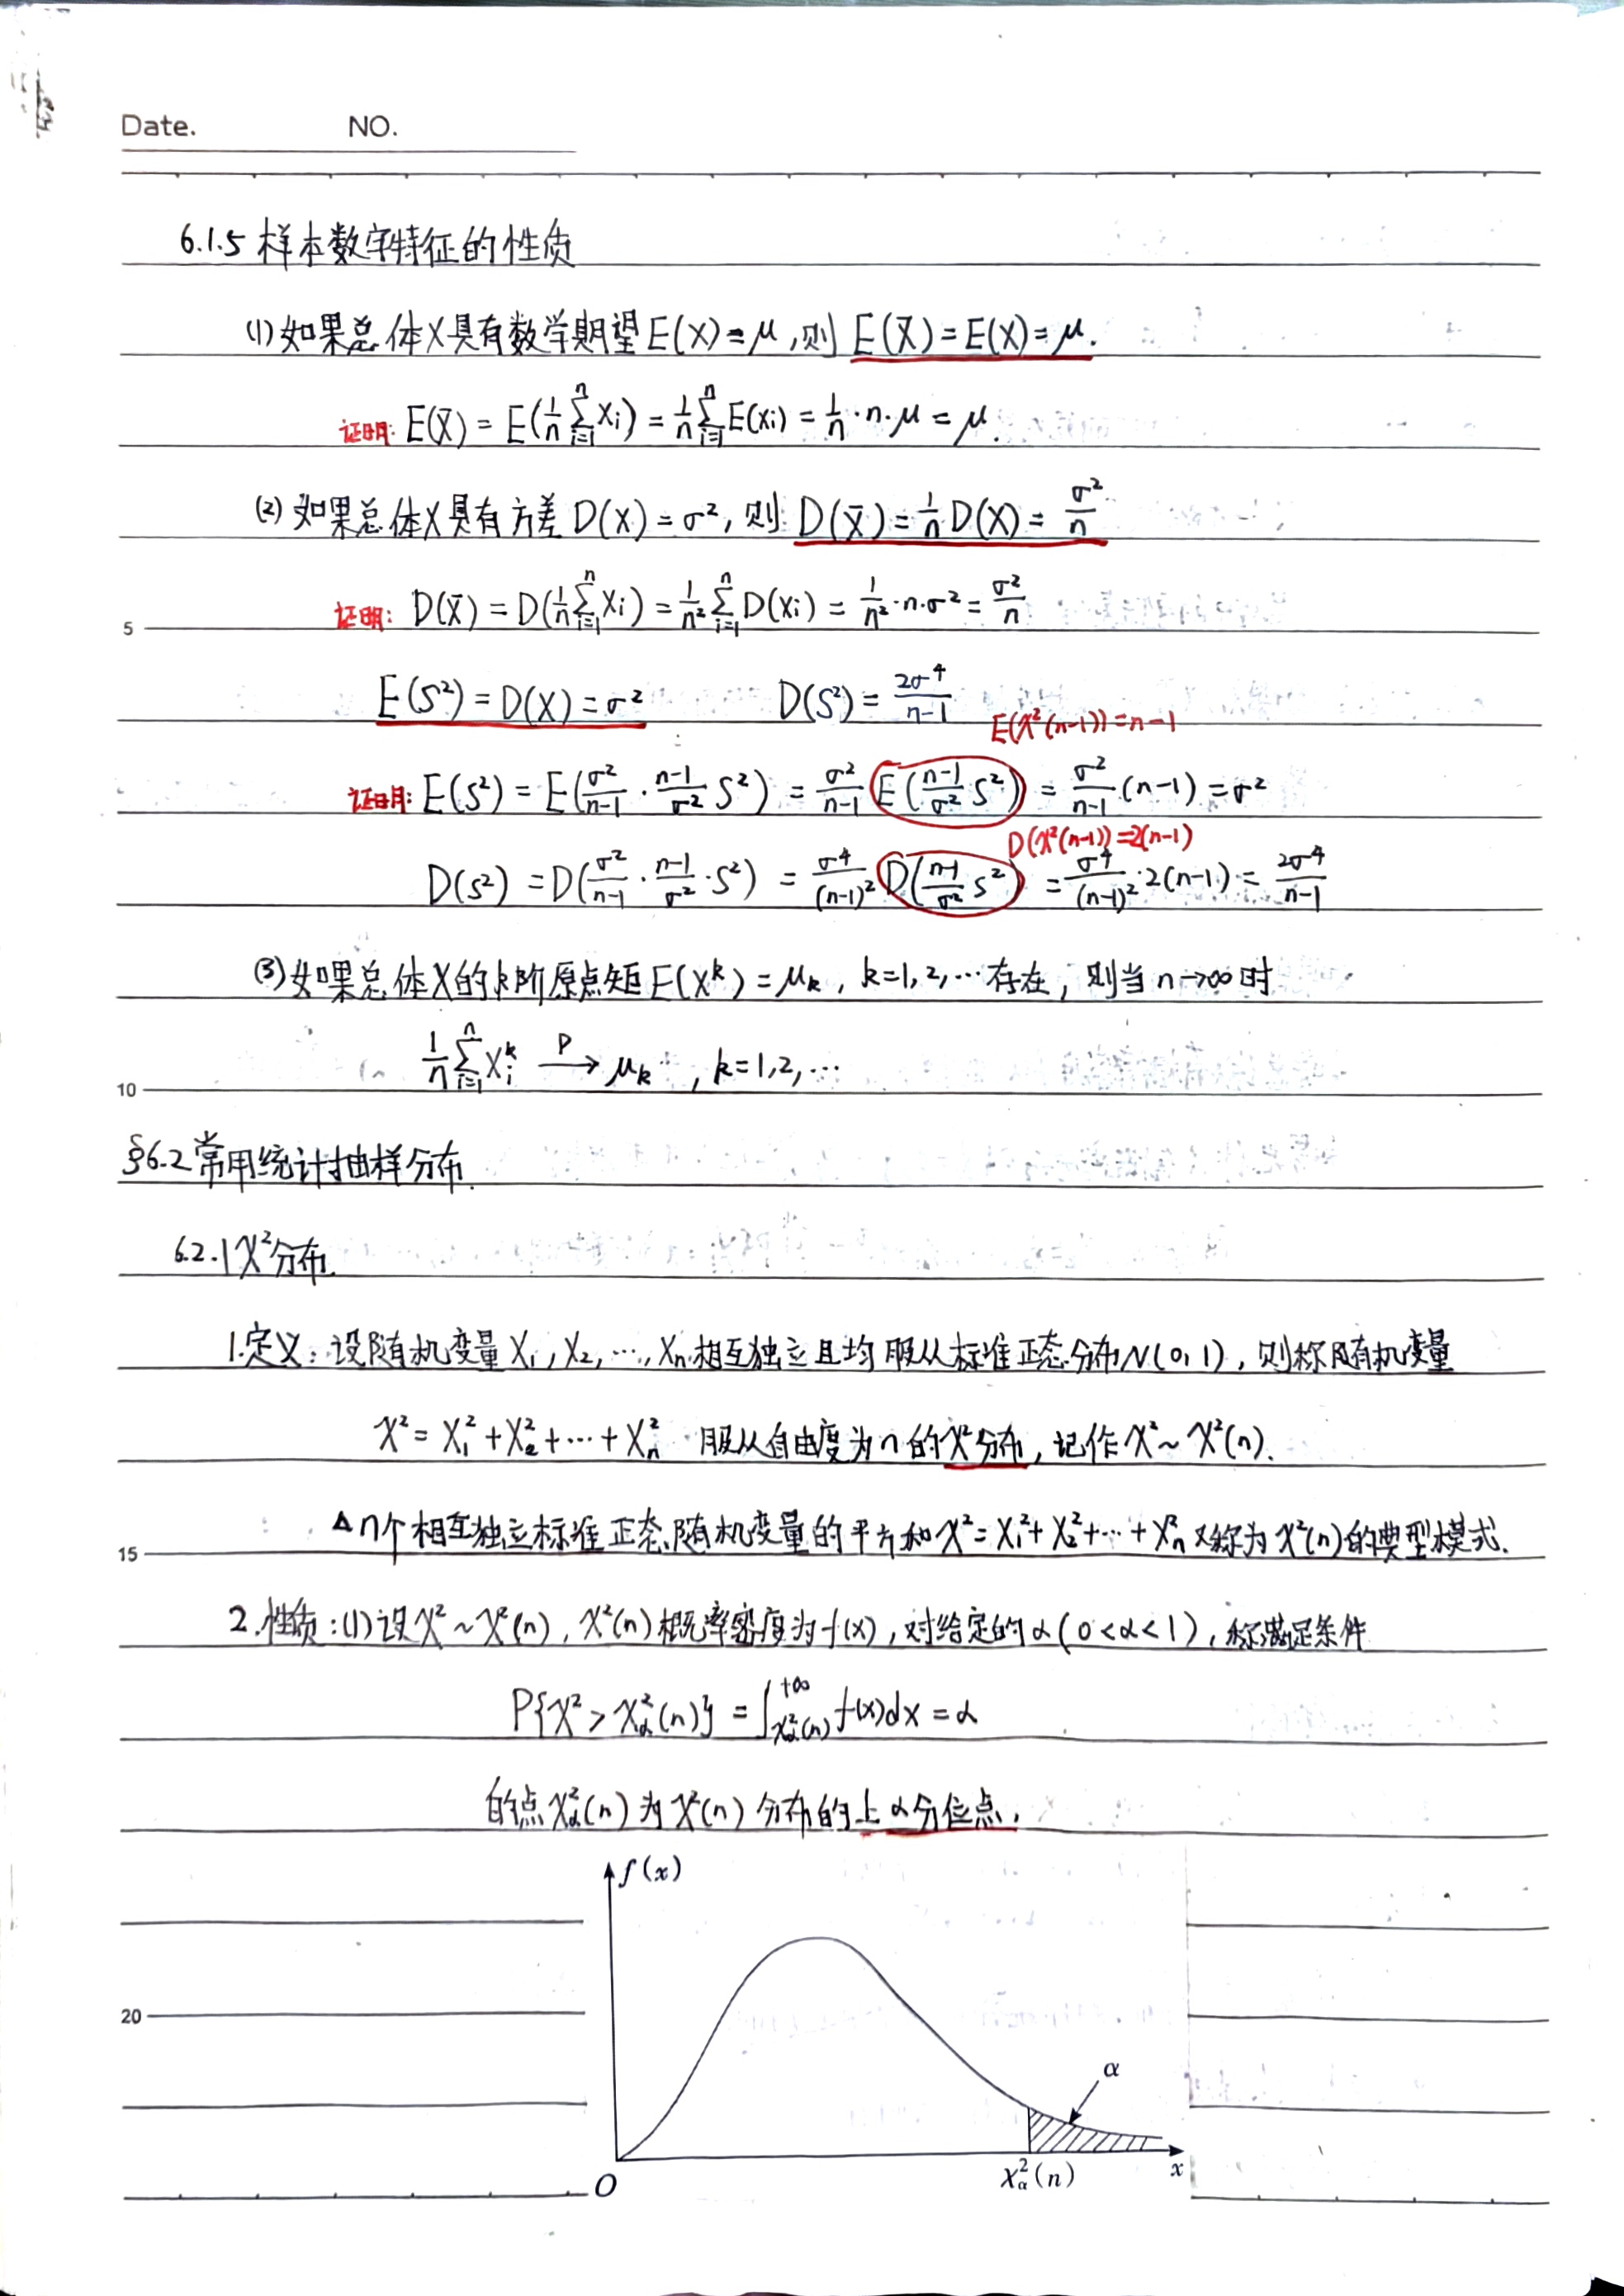 Date. NO.
6.1.5 样本数字特征的性质
(1) 如果总体X具有数学期望E(X)=μ,则 E(X̄)=E(X)=μ.
证明: E(X̄) = E(1/n ∑_{i=1}^{n} Xi) = 1/n ∑_{i=1}^{n} E(Xi) = 1/n · n · μ = μ.
(2) 如果总体X具有方差 D(X)=σ², 则 D(X̄) = 1/n D(X) = σ²/n
证明: D(X̄) = D(1/n ∑_{i=1}^{n} Xi) = 1/n² ∑_{i=1}^{n} D(Xi) = 1/n² · n · σ² = σ²/n
5
E(S²) = D(X) = σ² D(S²) = 2σ⁴/(n-1)
E(χ²(n-1)) = n-1
证明: E(S²) = E(σ²/(n-1) · (n-1)/σ² S²) = σ²/(n-1) E((n-1)/σ² S²) = σ²/(n-1) (n-1) = σ²
D(χ²(n-1)) = 2(n-1)
D(S²) = D(σ²/(n-1) · (n-1)/σ² · S²) = σ⁴/(n-1)² D((n-1)/σ² S²) = σ⁴/(n-1)² · 2(n-1) = 2σ⁴/(n-1)
(3) 如果总体X的k阶原点矩E(X^k) = μk, k=1,2,… 存在, 则当 n→∞ 时
1/n ∑_{i=1}^{n} X_i^k —P→ μk , k=1,2,…
10
§6.2 常用统计抽样分布.
6.2.1 χ²分布.
1.定义: 设随机变量 X₁, X₂, …, Xn 相互独立且均服从标准正态分布N(0,1), 则称随机变量
χ² = X₁² + X₂² + … + Xn² 服从自由度为n的χ²分布, 记作χ²~χ²(n).
△n个相互独立标准正态随机变量的平方和χ²=X₁²+X₂²+…+Xn²又称为χ²(n)的典型模式.
15
2.性质: (1)设χ²~χ²(n), χ²(n)概率密度为f(x), 对给定的α(0<α<1), 称满足条件
P{χ² > χ²_α(n)} = ∫_{χ²_α(n)}^{+∞} f(x)dx = α
的点χ²_α(n)为χ²(n)分布的上α分位点.
f(x)
20
α
O χ²_α(n) x